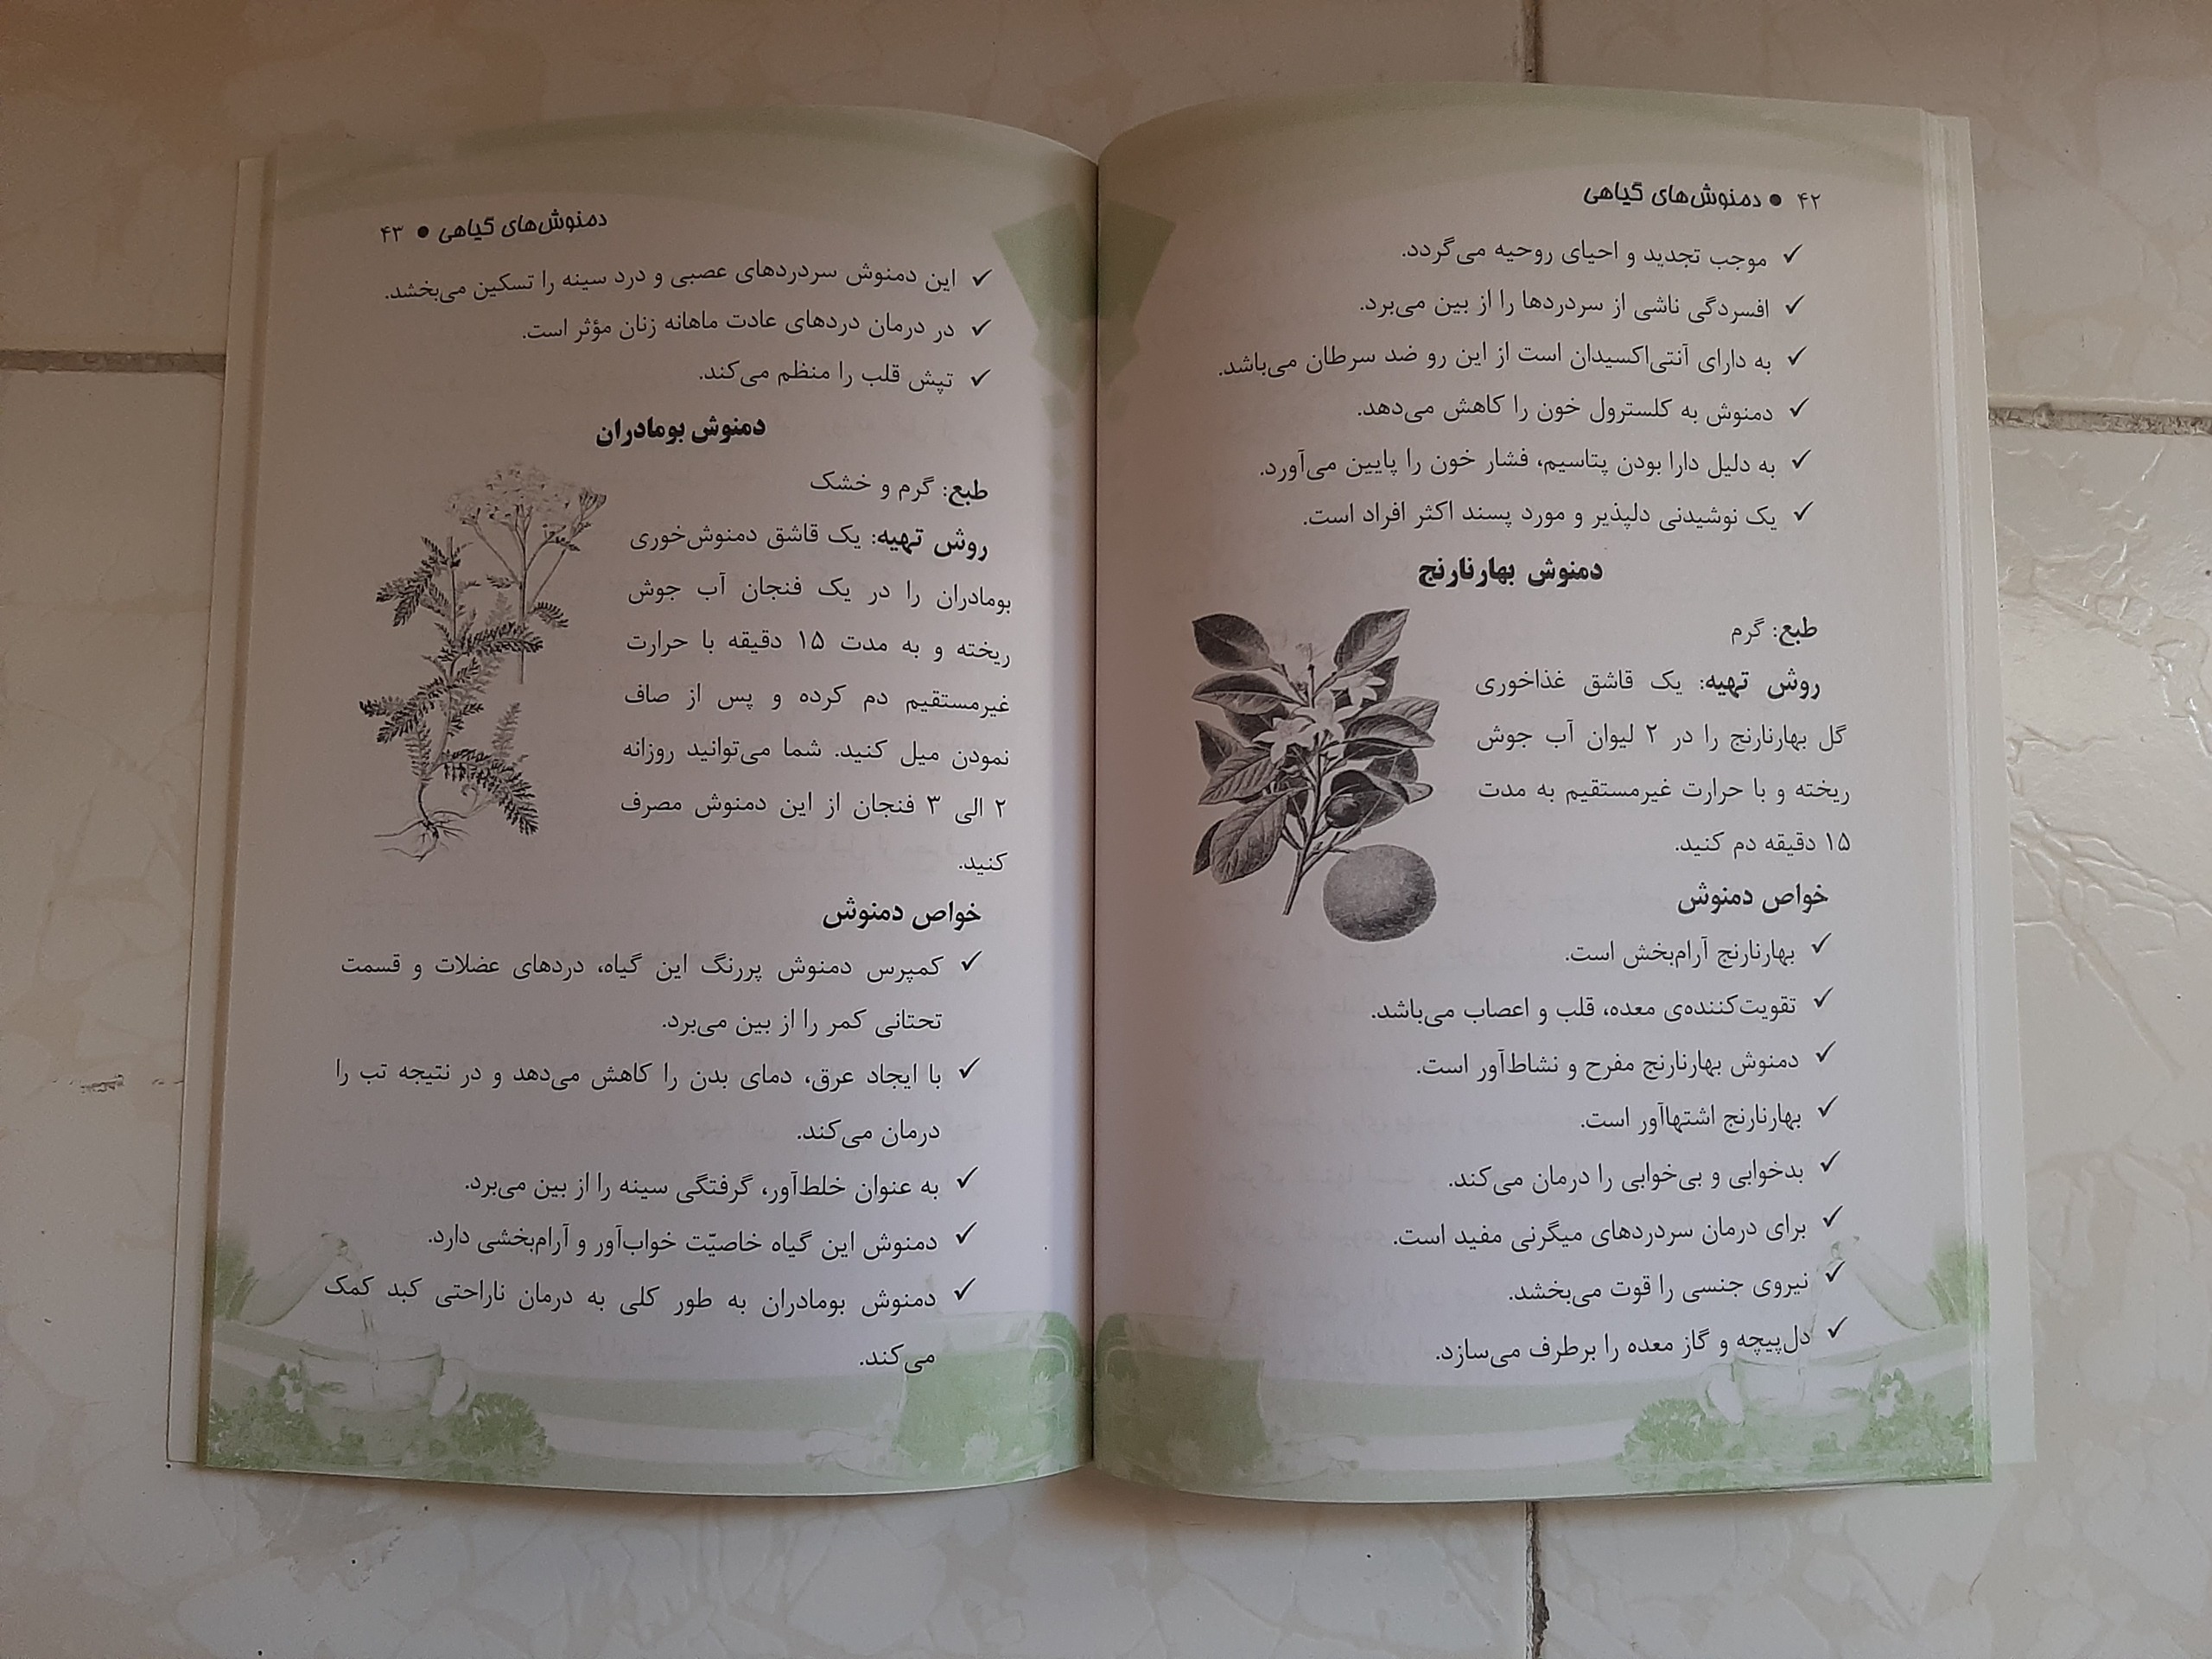 ۴۲ ● دمنوش‌های گیاهی
✓ موجب تجدید و احیای روحیه می‌گردد.
✓ افسردگی ناشی از سردردها را از بین می‌برد.
✓ به دارای آنتی‌اکسیدان است از این رو ضد سرطان می‌باشد.
✓ دمنوش به کلسترول خون را کاهش می‌دهد.
✓ به دلیل دارا بودن پتاسیم، فشار خون را پایین می‌آورد.
✓ یک نوشیدنی دلپذیر و مورد پسند اکثر افراد است.
دمنوش بهارنارنج
طبع: گرم
روش تهیه: یک قاشق غذاخوری
گل بهارنارنج را در ۲ لیوان آب جوش
ریخته و با حرارت غیرمستقیم به مدت
۱۵ دقیقه دم کنید.
خواص دمنوش
✓ بهارنارنج آرام‌بخش است.
✓ تقویت‌کننده‌ی معده، قلب و اعصاب می‌باشد.
✓ دمنوش بهارنارنج مفرح و نشاط‌آور است.
✓ بهارنارنج اشتهاآور است.
✓ بدخوابی و بی‌خوابی را درمان می‌کند.
✓ برای درمان سردردهای میگرنی مفید است.
✓ نیروی جنسی را قوت می‌بخشد.
✓ دل‌پیچه و گاز معده را برطرف می‌سازد.
دمنوش‌های گیاهی ● ۴۳
✓ این دمنوش سردردهای عصبی و درد سینه را تسکین می‌بخشد.
✓ در درمان دردهای عادت ماهانه زنان مؤثر است.
✓ تپش قلب را منظم می‌کند.
دمنوش بومادران
طبع: گرم و خشک
روش تهیه: یک قاشق دمنوش‌خوری
بومادران را در یک فنجان آب جوش
ریخته و به مدت ۱۵ دقیقه با حرارت
غیرمستقیم دم کرده و پس از صاف
نمودن میل کنید. شما می‌توانید روزانه
۲ الی ۳ فنجان از این دمنوش مصرف
کنید.
خواص دمنوش
✓ کمپرس دمنوش پررنگ این گیاه، دردهای عضلات و قسمت
تحتانی کمر را از بین می‌برد.
✓ با ایجاد عرق، دمای بدن را کاهش می‌دهد و در نتیجه تب را
درمان می‌کند.
✓ به عنوان خلط‌آور، گرفتگی سینه را از بین می‌برد.
✓ دمنوش این گیاه خاصیّت خواب‌آور و آرام‌بخشی دارد.
✓ دمنوش بومادران به طور کلی به درمان ناراحتی کبد کمک
می‌کند.